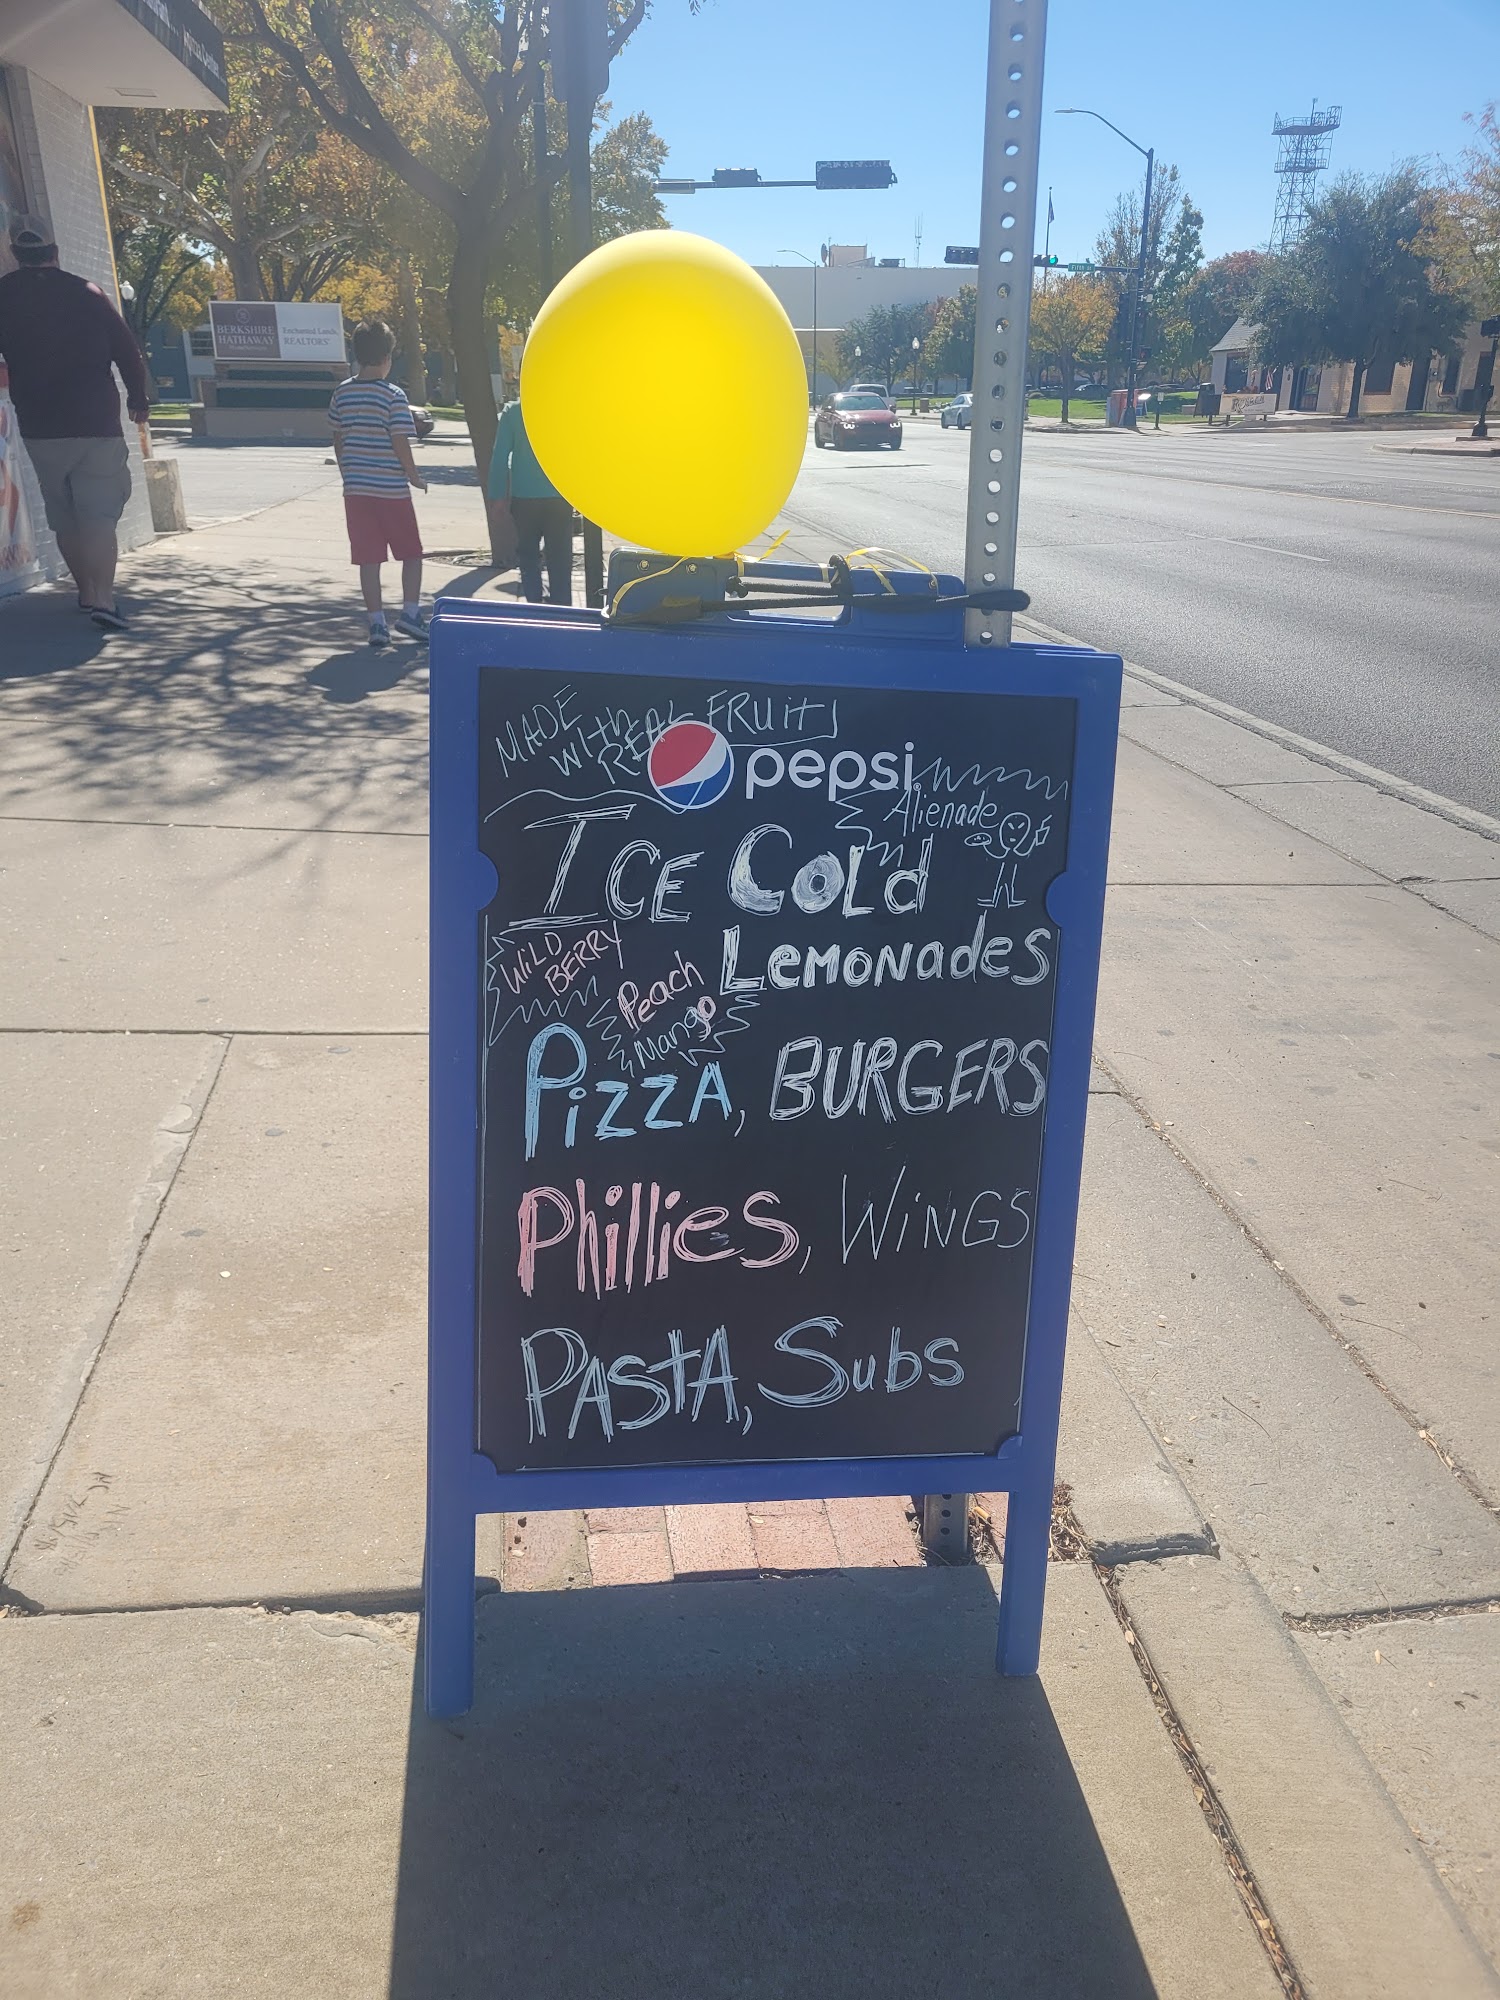 BERKSHIRE
HATHAWAY
Enchanted Lands
REALTORS
MADE
WITH
REAL FRUIT
pepsi
Alienade
ICE COLD
LEMONADES
WILD
BERRY
Peach
Mango
PIZZA, BURGERS
Phillies, WINGS
PASTA, Subs